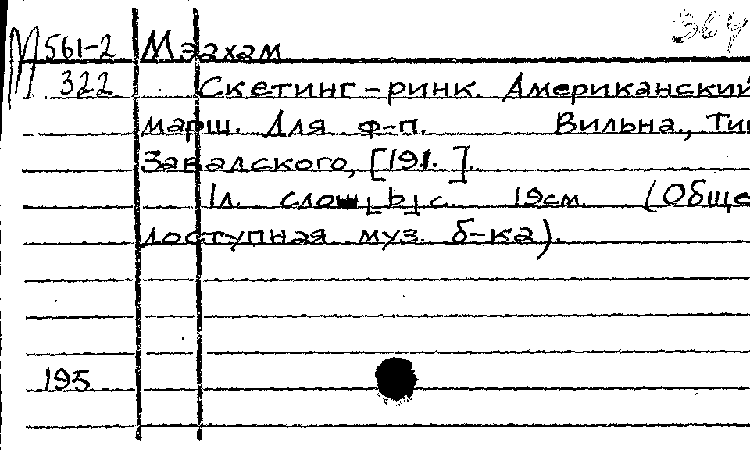 364
М 561-2 Мэахам
322 Скетинг-ринк. Американский
марш. Для ф-п. Вильна., Тип
Завадского, [191. ].
1л. слош[ь]с. 19см. (Обще
доступная муз. б-ка).
195